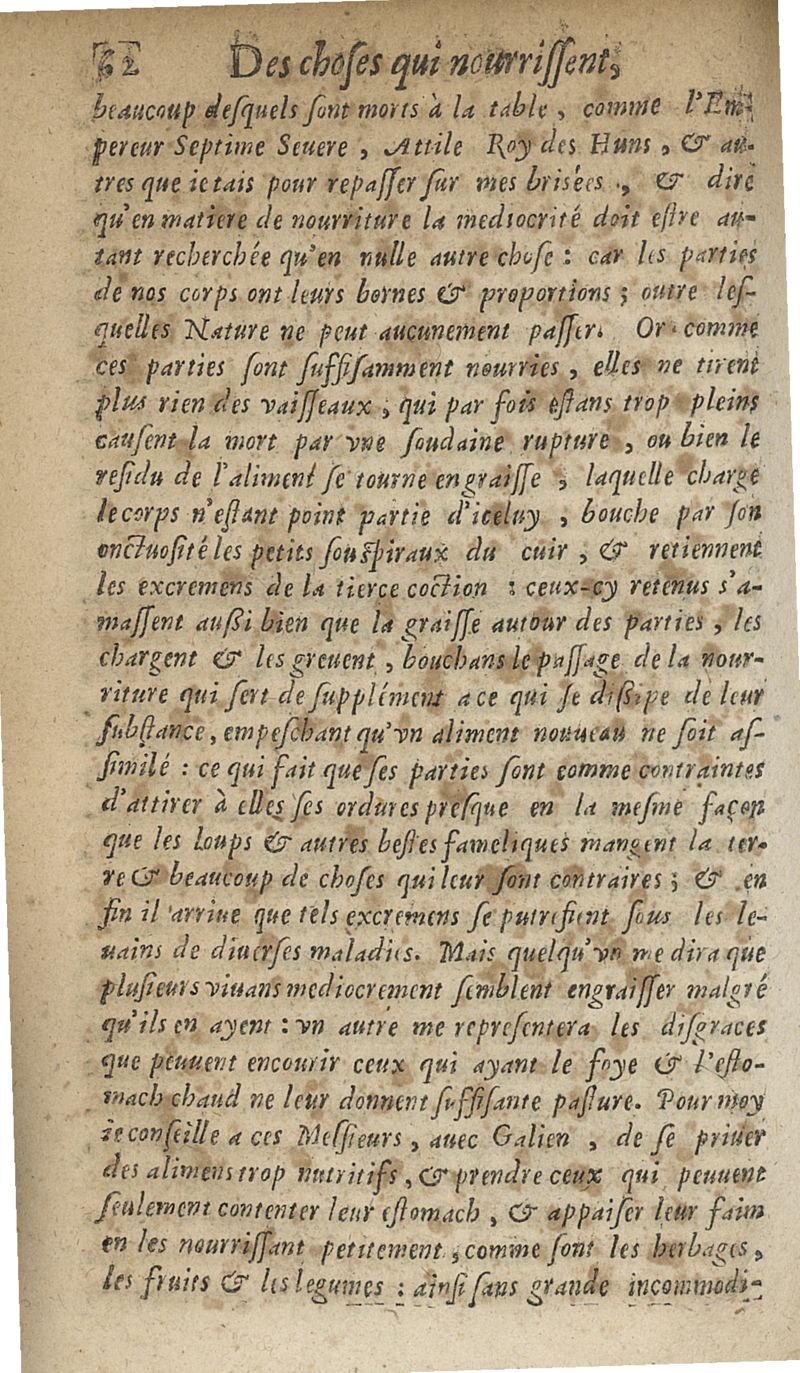 62 Des choſes qui nourriſſent,
beaucoup deſquels ſont morts à la table, comme l'Em-
pereur Septime Seuere, Attile Roy des Huns, & au-
tres que ie tais pour repaſſer ſur mes briſées, & dire
qu'en matiere de nourriture la mediocrité doit eſtre au-
tant recherchée qu'en nulle autre choſe : car les parties
de nos corps ont leurs bornes & proportions ; outre leſ-
quelles Nature ne peut aucunement paſſer. Or comme
ces parties ſont ſuffiſamment nourries, elles ne tirent
plus rien des vaiſſeaux, qui par fois eſtans trop pleins
cauſent la mort par vne ſoudaine rupture, ou bien le
reſidu de l'aliment ſe tourne en graiſſe, laquelle charge
le corps n'eſtant point partie d'iceluy, bouche par ſon
onctuoſité les petits ſouſpiraux du cuir, & retiennent
les excremens de la tierce coction : ceux-cy retenus s'a-
maſſent auſſi bien que la graiſſe autour des parties, les
chargent & les greuent, bouchans le paſſage de la nour-
riture qui ſert de ſupplément a ce qui ſe diſſipe de leur
ſubſtance, empeſchant qu'vn aliment nouueau ne ſoit aſ-
ſimilé : ce qui fait que ſes parties ſont comme contraintes
d'attirer à elles ſes ordures preſque en la meſme façon
que les loups & autres beſtes fameliques mangent la ter-
re & beaucoup de choſes qui leur ſont contraires ; & en
fin il arriue que tels excremens ſe putrefient ſous les le-
uains de diuerſes maladies. Mais quelqu'vn me dira que
pluſieurs viuans mediocrement ſemblent engraiſſer malgré
qu'ils en ayent : vn autre me repreſentera les diſgraces
que peuuent encourir ceux qui ayant le foye & l'eſto-
mach chaud ne leur donnent ſuffiſante paſture. Pour moy
ie conſeille a ces Meſſieurs, auec Galien, de ſe priuer
des alimens trop nutritifs, & prendre ceux qui peuuent
ſeulement contenter leur eſtomach, & appaiſer leur faim
en les nourriſſant petitement, comme ſont les herbages,
les fruits & les legumes : ainſi ſans grande incommodi-